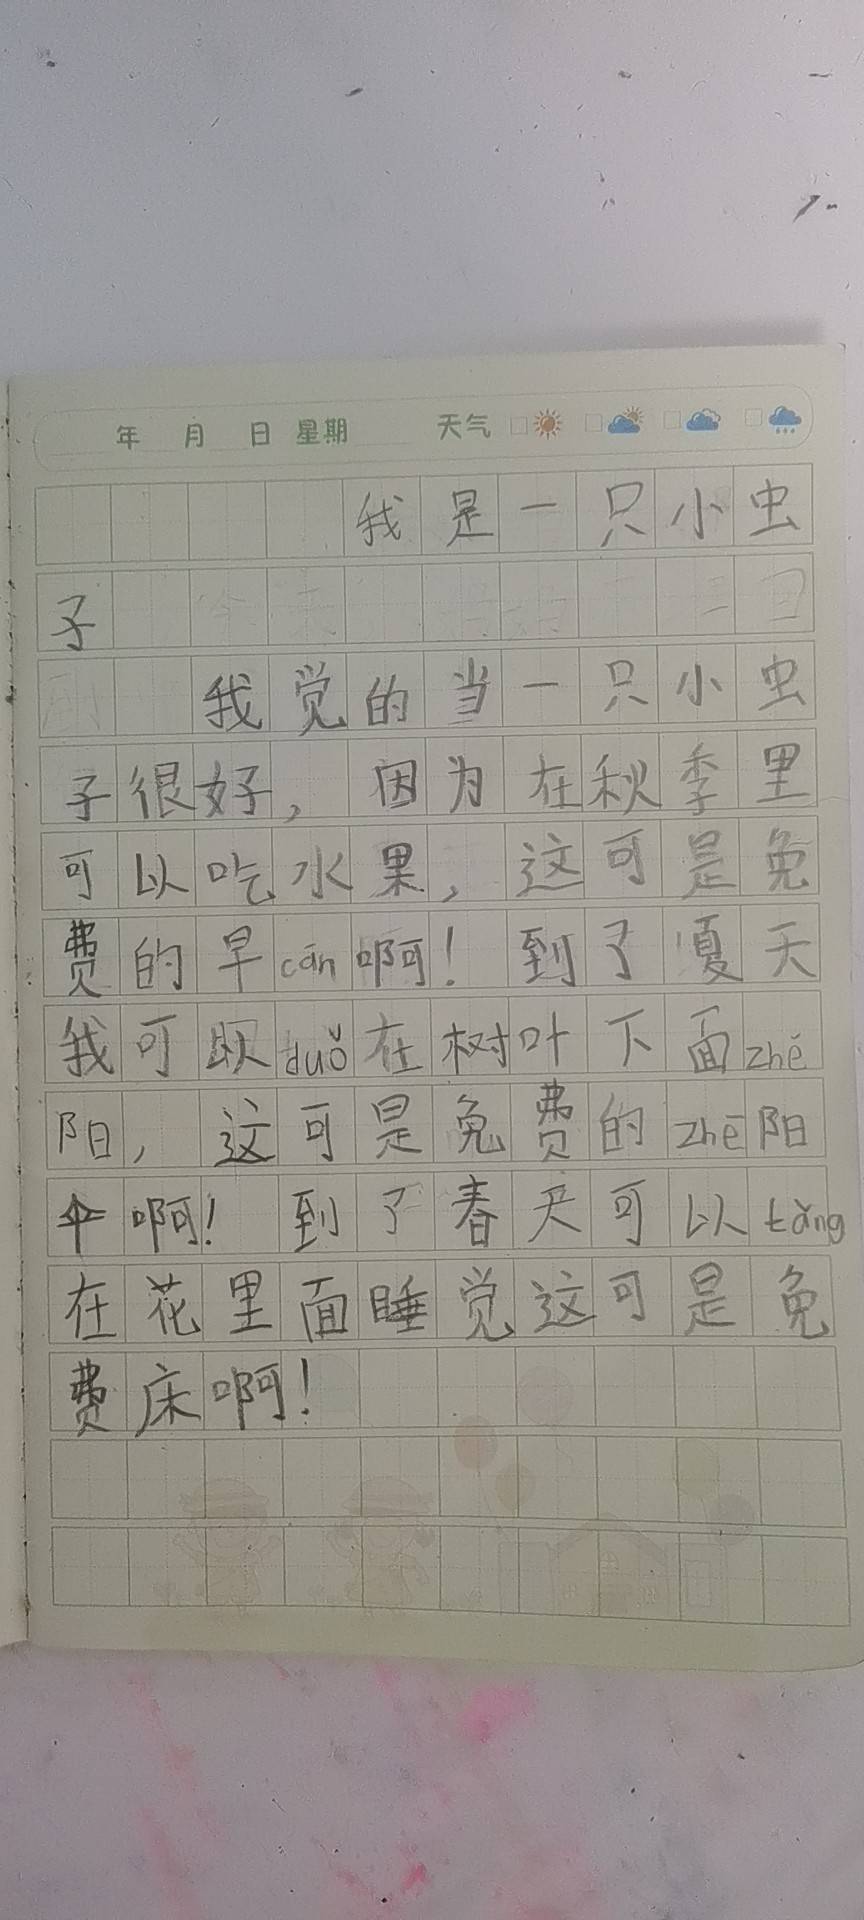 年 月 日 星期 天气
我是一只小虫
子
我觉的当一只小虫
子很好，因为在秋季里
可以吃水果，这可是免
费的早cān啊！到了夏天
我可以duǒ在树叶下面zhē
阳，这可是免费的zhē阳
伞啊！到了春天可以tǎng
在花里面睡觉这可是免
费床啊！